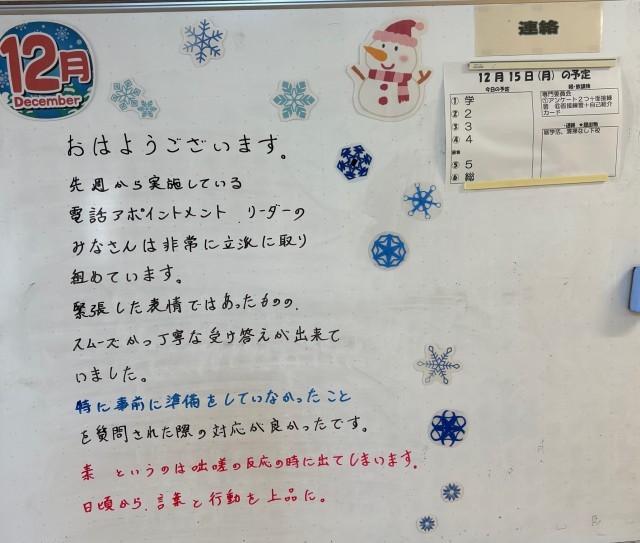 12月
December
連絡
12月15日(月)の予定
今日の予定
① 学
② 2
③ 3
④ 4
⑤ 5
⑥ 総
専門委員会
①アンケート2つ+面接練
習 ⑥面接練習+自己紹介
カード
おはようございます。
先週から実施している
電話アポイントメント リーダーの
みなさんは非常に立派に取り
組めています。
緊張した表情ではあったものの、
スムーズかつ丁寧な受け答えが出来て
いました。
特に事前に準備をしていなかったこと
を質問された際の対応が良かったです。
素 というのは咄嗟の反応の時に出てしまいます。
日頃から、言葉と行動を上品に。